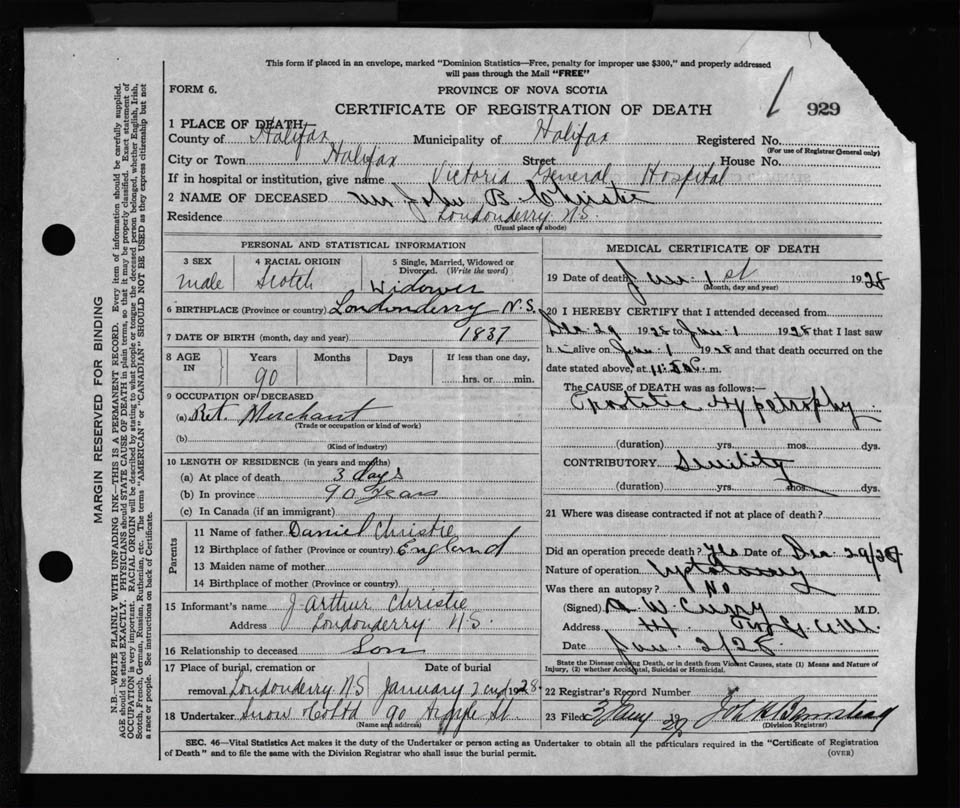 This form if placed in an envelope, marked "Dominion Statistics—Free, penalty for improper use $300," and properly addressed
will pass through the Mail "FREE"
FORM 6.
PROVINCE OF NOVA SCOTIA
CERTIFICATE OF REGISTRATION OF DEATH
929
1 PLACE OF DEATH,
County of Halifax Municipality of Halifax Registered No.
(For use of Registrar General only)
City or Town Halifax Street House No.
If in hospital or institution, give name Victoria General Hospital
2 NAME OF DECEASED Mr John B. Christie
Residence Londonderry N.S.
(Usual place of abode)
PERSONAL AND STATISTICAL INFORMATION
3 SEX
male
4 RACIAL ORIGIN
Scotch
5 Single, Married, Widowed or
Divorced. (Write the word)
Widower
6 BIRTHPLACE (Province or country) Londonderry N.S.
7 DATE OF BIRTH (month, day and year) 1837
8 AGE
IN
Years
90
Months
Days
If less than one day,
hrs. or min.
9 OCCUPATION OF DECEASED
(a) Ret. Merchant
(Trade or occupation or kind of work)
(b)
(Kind of industry)
10 LENGTH OF RESIDENCE (in years and months)
(a) At place of death 3 days
(b) In province 90 Years
(c) In Canada (if an immigrant)
Parents
11 Name of father Daniel Christie
12 Birthplace of father (Province or country) England
13 Maiden name of mother
14 Birthplace of mother (Province or country)
15 Informant's name J Arthur Christie
Address Londonderry N.S.
16 Relationship to deceased Son
17 Place of burial, cremation or
removal Londonderry N.S
Date of burial
January 2nd 1928
18 Undertaker Snow & Co Ltd 90 Argyle St
(Name and address)
MEDICAL CERTIFICATE OF DEATH
19 Date of death Jan. 1st 1928
(Month, day and year)
20 I HEREBY CERTIFY that I attended deceased from
Dec. 29 1928 to Jan. 1 1928 that I last saw
h alive on Jan. 1 1928 and that death occurred on the
date stated above, at m.
The CAUSE of DEATH was as follows:
Prostatic Hypetrophy
(duration) yrs. mos. dys.
CONTRIBUTORY Senility
(duration) yrs. mos. dys.
21 Where was disease contracted if not at place of death?
Did an operation precede death? Yes Date of Dec. 29/
Nature of operation
Was there an autopsy? No
(Signed) W. Curry M.D.
Address
Date Jan. 2/28
State the Disease causing Death, or in death from Violent Causes, state (1) Means and Nature of
Injury, (2) whether Accidental, Suicidal or Homicidal.
22 Registrar's Record Number
23 Filed 3 Jany 28
(Division Registrar)
SEC. 46—Vital Statistics Act makes it the duty of the Undertaker or person acting as Undertaker to obtain all the particulars required in the "Certificate of Registration
of Death" and to file the same with the Division Registrar who shall issue the burial permit.
(OVER)
MARGIN RESERVED FOR BINDING
N.B.—WRITE PLAINLY WITH UNFADING INK—THIS IS A PERMANENT RECORD. Every item of information should be carefully supplied.
AGE should be stated EXACTLY. PHYSICIANS should STATE CAUSE OF DEATH in plain terms, so that it may be properly classified. Exact statement of
OCCUPATION is very important. RACIAL ORIGIN will be described by stating to what people or tongue the deceased person belonged, whether English, Irish,
Scotch, French, German, Russian, Ruthenian, etc. The terms "AMERICAN" or "CANADIAN" SHOULD NOT BE USED as they express citizenship but not
a race or people. See instructions on back of Certificate.